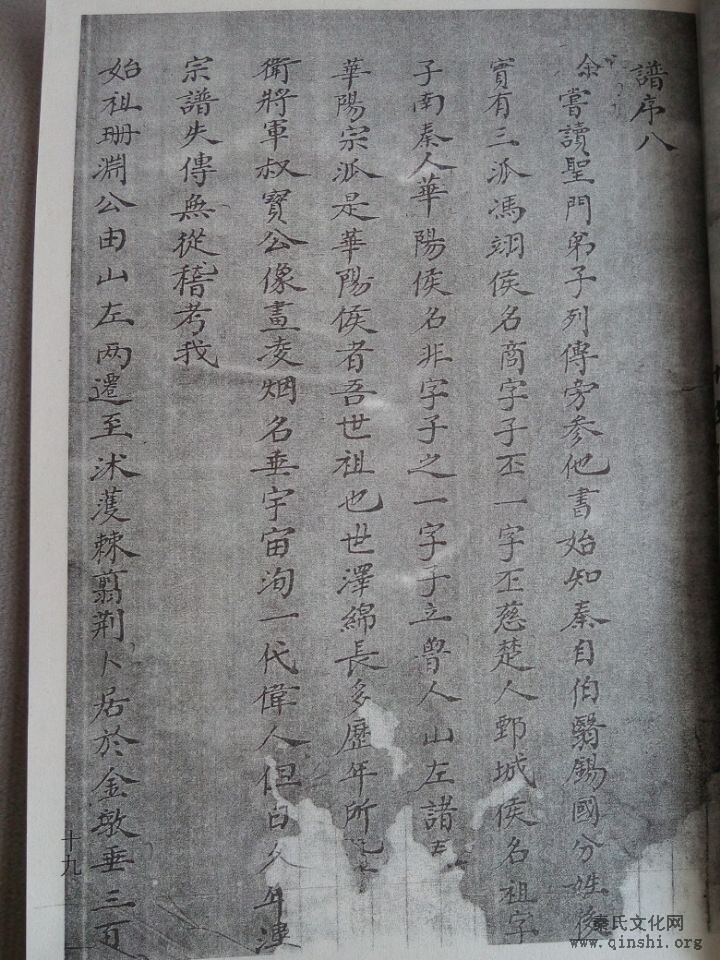 譜序八
余嘗讀聖門弟子列傳旁参他書始知秦自伯翳錫國分姓後
實有三派馮翊侯名商字子丕一字丕慈楚人鄄城侯名祖字
子南秦人華陽侯名非字子之一字子立魯人山左諸
華陽宗派是華陽侯者吾世祖也世澤綿長多歷年所
衛將軍叔寳公像畫凌烟名垂宇宙洵一代偉人但日久年湮
宗譜失傳無從稽考我
始祖珊淵公由山左两遷至沭蓌棘翦荆卜居於金墩垂三百
十九
秦氏文化网
www.qinshi.org